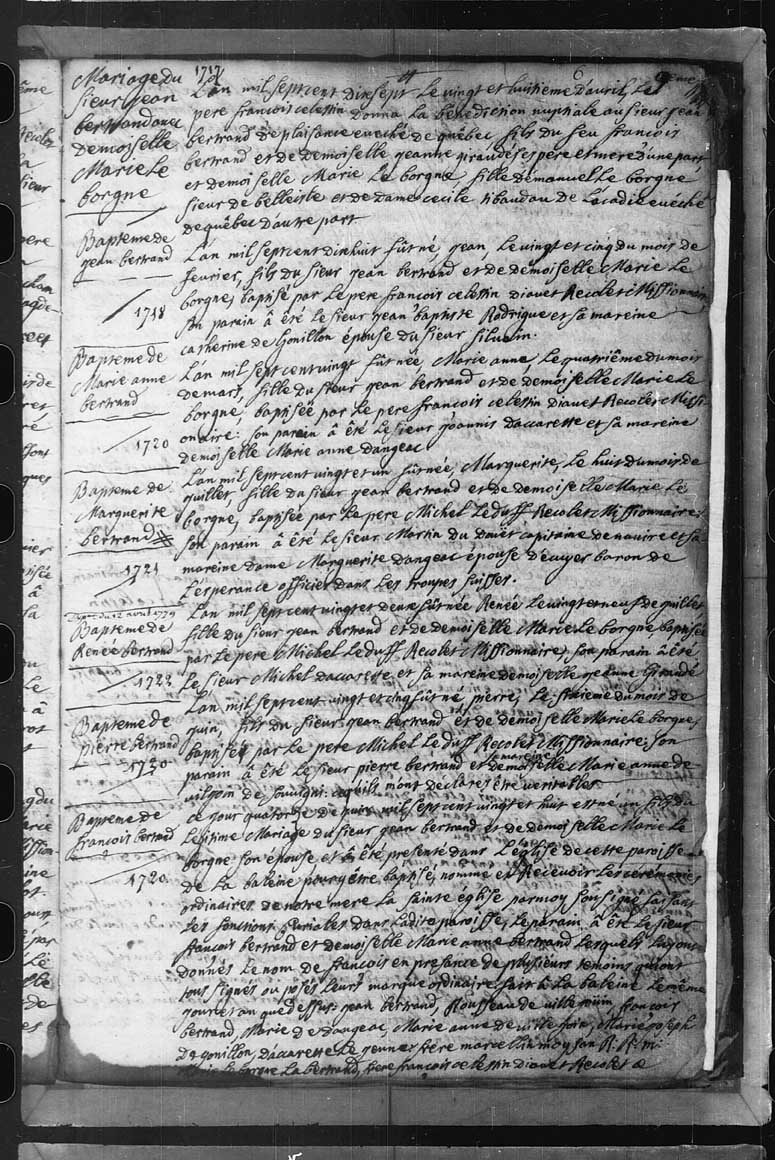 Mariage du
sieur jean
bertrand avec
demoiselle
Marie Le
borgne
1717
L'an mil sept cent dix sept Le vingt et huitieme d'avril, Le
pere francois celestin donna La benediction nuptiale au sieur jean
bertrand de plaisance evêché de quebec fils du feu francois
bertrand et de demoiselle jeanne giraudé ses pere et mere d'une part
et demoiselle Marie Le borgne fille d'emanuel Le borgne
sieur de belleisle et de dame cecile tibaudau de L'acadie evêché
de quêbec d'autre part
Bapteme de
jean bertrand
1718
L'an mil sept cent dixhuit fût né, jean, Le vingt et cinq du mois de
fevrier, fils du sieur jean bertrand et de demoiselle Marie Le
borgne, baptisé par Le pere francois celestin diauet Recolet Missionnaire
son parain â été Le sieur jean baptiste Rodrigue et sa mareine
catherine de Gonillon épouse du sieur siluain.
Bapteme de
Marie anne
bertrand
1720
L'an mil sept cent vingt fût née, Marie anne, Le quatriême du mois
de mars, fille du sieur jean bertrand et de demoiselle Marie Le
borgne, baptisée par Le pere francois celestin diauet Recolet Missi
onaire: son parain â été Le sieur joannis Daccarette et sa mareine
demoiselle Marie anne dangeac
Bapteme de
Marguerite
bertrand
1721
L'an mil sept cent vingt et un fût née, Marguerite, Le huit du mois de
juillet, fille du sieur jean bertrand et de demoiselle Marie Le
borgne, baptisée par Le pere Michel Le duff Recolet Missionnaire:
son parain â été Le sieur Martin du Douët capitaine de navire et sa
mareine dame Marguerite dangeac épouse d'ecuyer baron de
L'esperance officier dans Les troupes suisses.
Bapteme de
Renée bertrand
1722
L'an mil sept cent vingt et deux fût née Renée Le vingt et neuf de juillet
fille du sieur jean bertrand et de demoiselle Marie Le borgne, baptisée
par Le pere Michel Le duff Recolet Missionnaire, son parain â été
Le sieur Michel daccarette et sa mareine demoiselle jeanne Giraudé
Bapteme de
pierre bertrand
L'an mil sept cent vingt et cinq fût né pierre, Le sixieme du mois de
juin, fils du sieur jean bertrand et de demoiselle Marie Le borgne,
baptisée par Le pere Michel Le duff Recolet Missionnaire: son
parain â été Le sieur pierre bertrand et sa mareine demoiselle Marie anne de
ce qu'ils m'ont declarés être veritables
Bapteme de
francois bertrand
ce jour quatorze de mil sept cent vingt et huit est né un fils du
Legitime Mariage du sieur jean bertrand et de demoiselle Marie Le
borgne son epouse et â été presenté dans L'église de cette paroisse
de La baleine pour y être baptisé, nommé et Recevoir Les ceremonies
ordinaires de notre mere La sainte église par moy soussigné faisant
Les fonctions Curiales dans La dite paroisse, Le parain â été Le sieur
francois bertrand et demoiselle Marie anne bertrand Lesquels Luy ont
donnés Le nom de francois en presance de plusieurs temoins qui ont
tous signés ou posés Leurs marque ordinaire fait â La baleine Le même
jour et an que dessus: jean bertrand, francois
bertrand, Marie de dangeac, Marie anne de, Marie joseph
De gonillon daccarette Le jeune: frere marcellin
Marie Le borgne La bertrand, frere francois celestin diauet Recolet